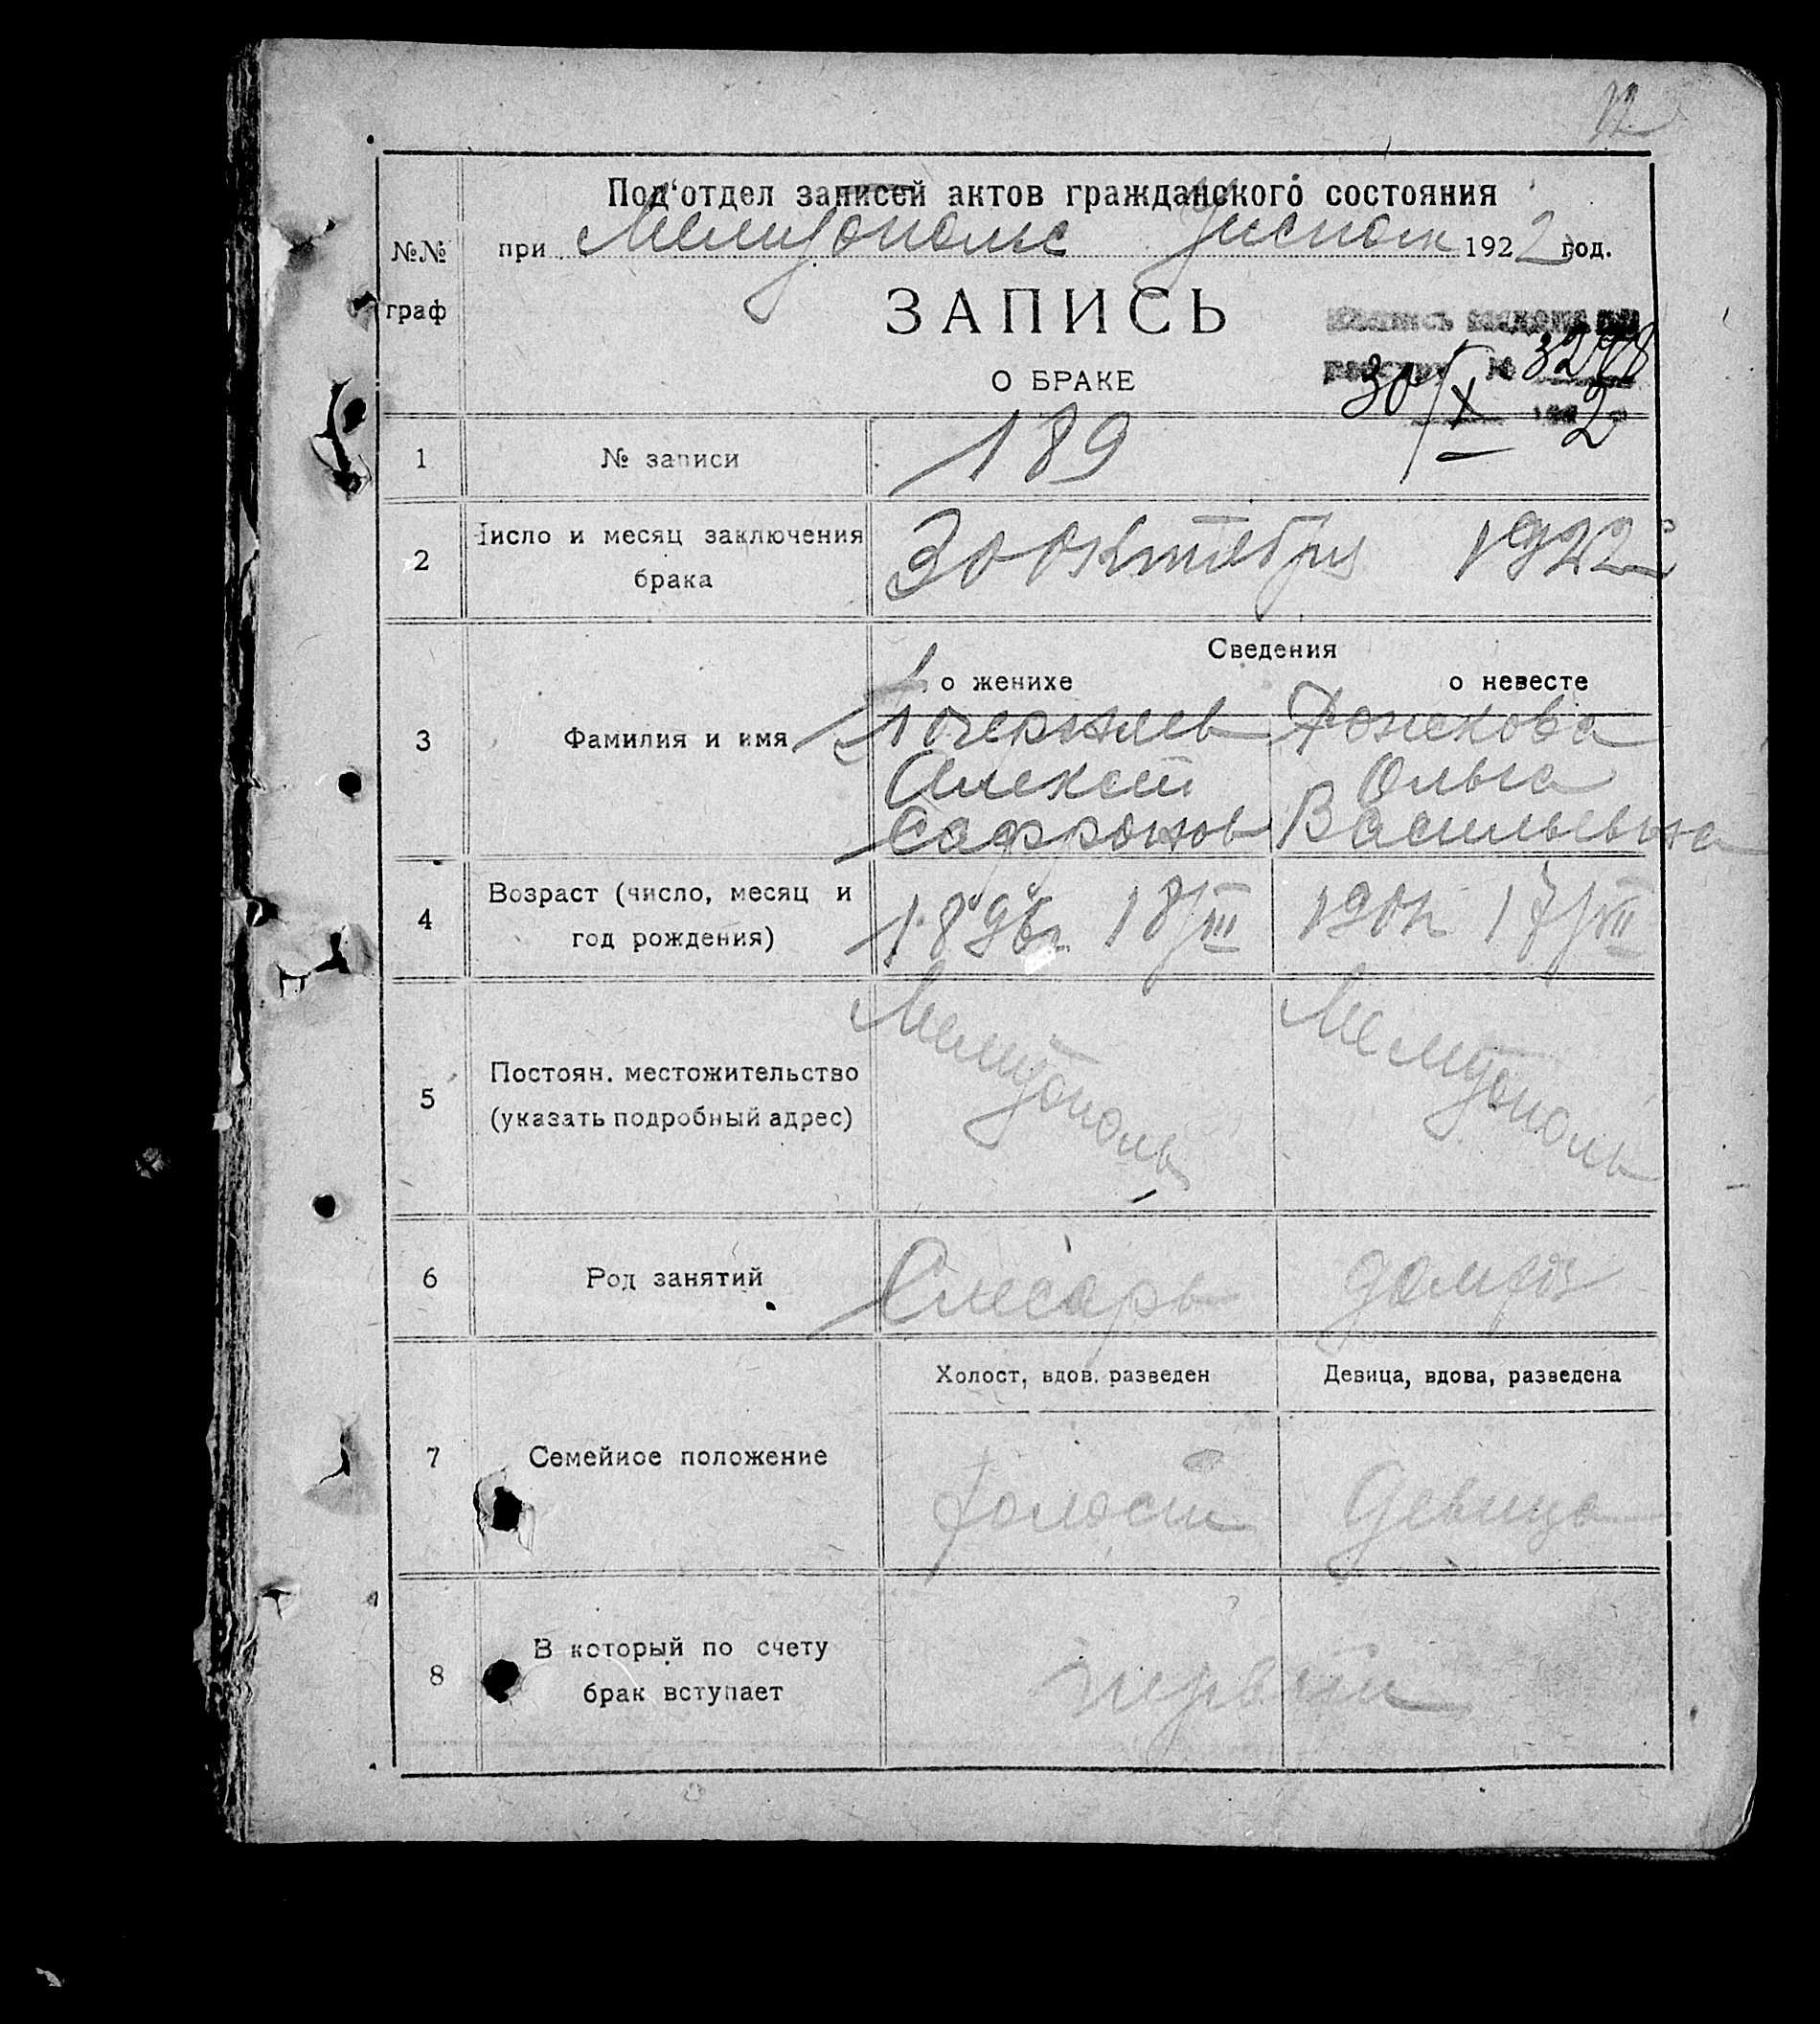 Под'отдел записей актов гражданского состояния
№№ граф
при Мелитополе Уисполк 1922 год.
ЗАПИСЬ
О БРАКЕ
№ 3278
30/X 2
1 № записи 189
2 Число и месяц заключения брака 30 Октября 1922
Сведения
о женихе о невесте
3 Фамилия и имя
Алексей Ольга
Сафронов Васильевна
4 Возраст (число, месяц и год рождения) 1896г. 18/III 17/VII
5 Постоян. местожительство (указать подробный адрес) Мелитополь Мелитополь
6 Род занятий Слесарь домхоз
Холост, вдов. разведен Девица, вдова, разведена
7 Семейное положение холост девица
8 В который по счету брак вступает первый